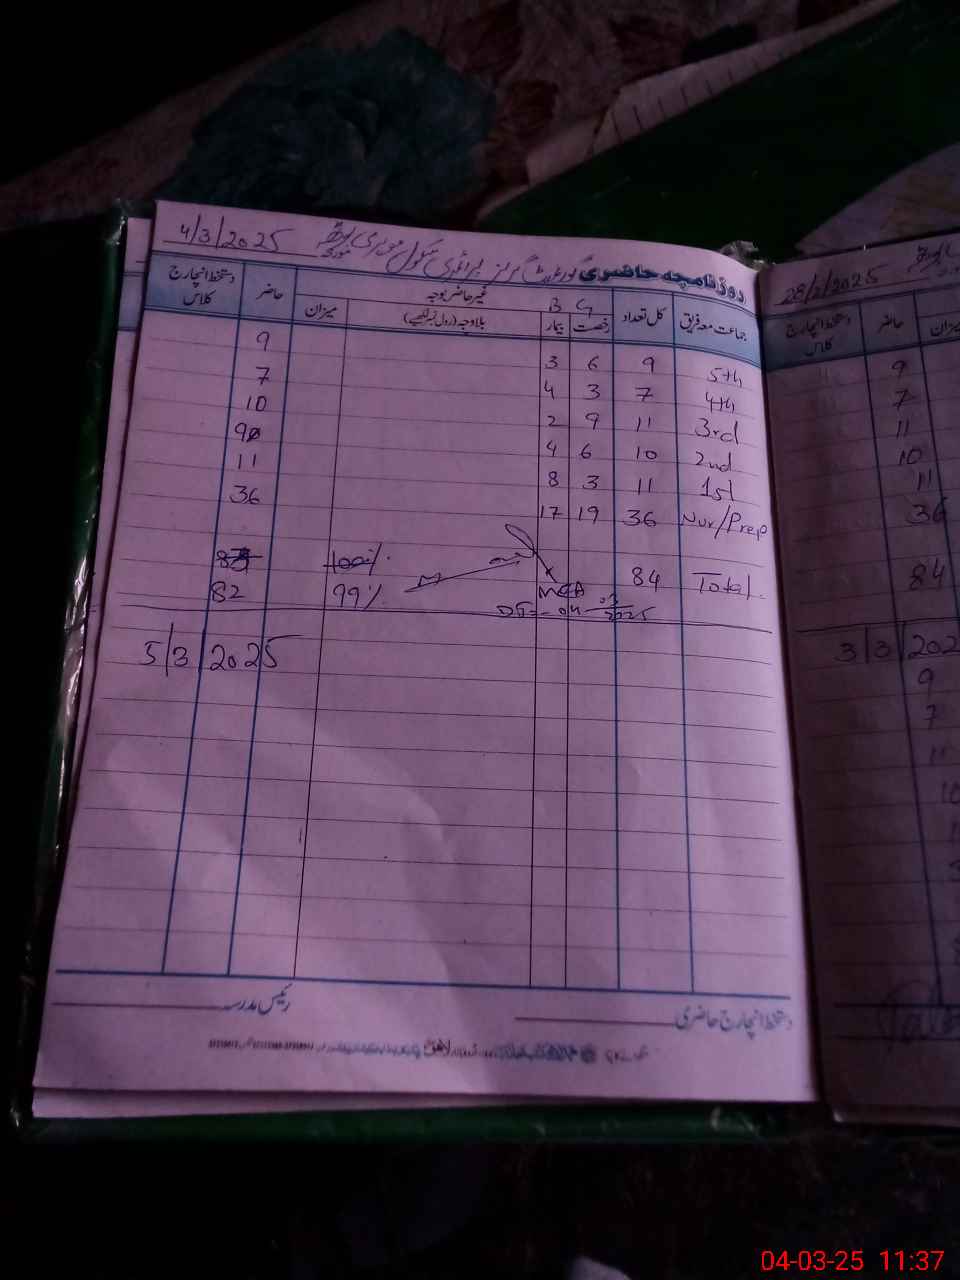 روزنامچہ حاضری گورنمنٹ گرلز پرائمری سکول مورخہ 4/3/2025
جماعت معہ فریق کل تعداد رخصت بیمار غیر حاضر بوجہ بلاوجہ (رول نمبر لکھیے) میزان حاضر دستخط انچارج کلاس
B G
5th 9 6 3 9
4th 7 3 4 7
3rd 11 9 2 10
2nd 10 6 4 9
1st 11 3 8 11
Nur/Prep 36 19 17 36
Total 84 100%
MEA 99% 82
04-03-2025
5/3/2025
دستخط انچارج حاضری
رئیس مدرسہ
28/2/2025
حاضر
دستخط انچارج کلاس
9
7
11
10
11
36
84
3/3/202
9
7
11
10
04-03-25 11:37